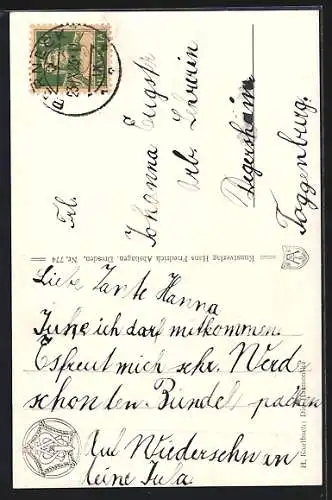 Frl.
Johanna Engstr
Arb. Lehrerin
Degersheim
Toggenburg.
Kunstverlag Hans Friedrich Abshagen, Dresden, Nr. 774
Liebe Tante Hanna
Juhe ich darf mitkommen.
Es freut mich sehr. Werde
schon den Bündel packen
Auf Wiedersehn an
deine Jula